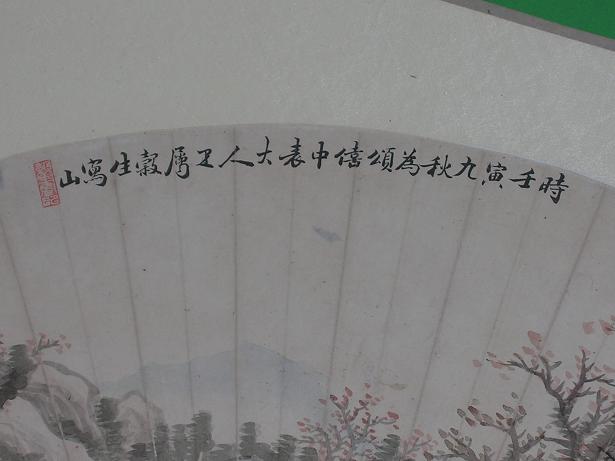 時壬寅九秋為頌僖中表大人正屬穀生寫山